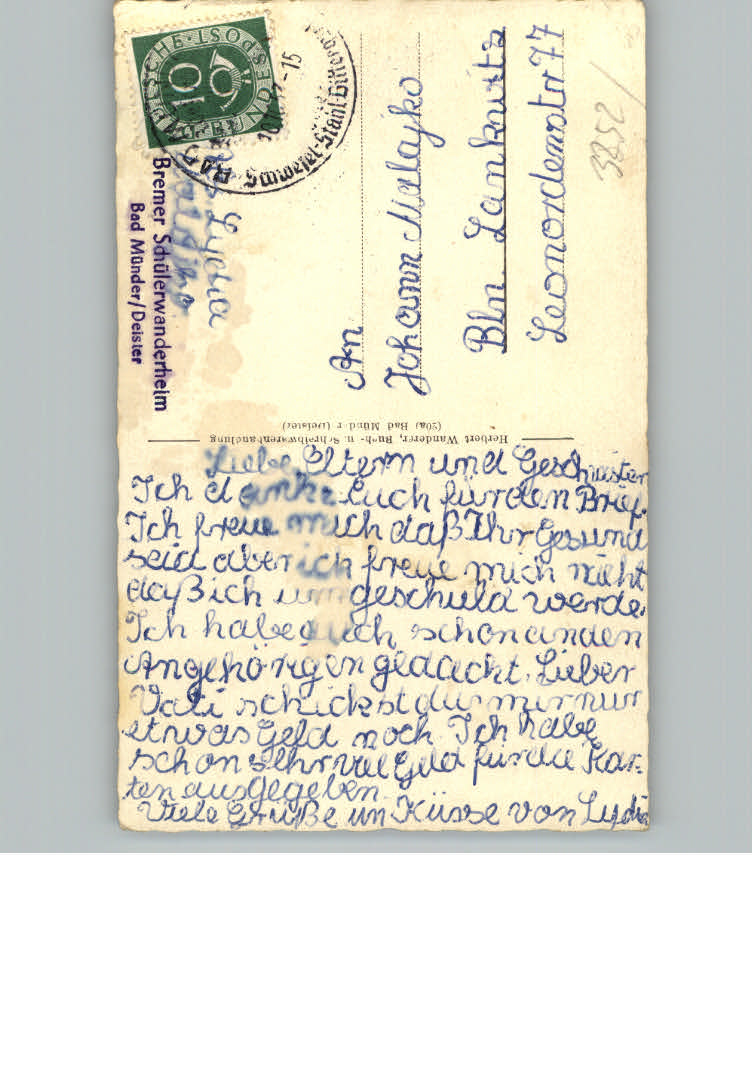 Liebe Eltern und Geschwister
Ich danke Euch für den Brief.
Ich freue mich daß Ihr Gesund
seid aber ich freue mich nicht
daß ich umgeschuld werde.
Ich habe auch schon an den
Angehörigen gedacht. Lieber
Vati schickst du mir nur
etwas Geld noch Ich habe
schon sehr viel Geld für die Kar-
ten ausgegeben
Viele Grüße un Küsse von Lydia
An
Johann Malajko
Bln Lankwitz
Leonordenstr 77
3252/
Lydia
Bremer Schülerwanderheim
Bad Münder/Deister
Herbert Wanderer, Buch- u. Schreibwarenhandlung
(20a) Bad Münder (Deister)
DEUTSCHE POST
10
BAD
-15